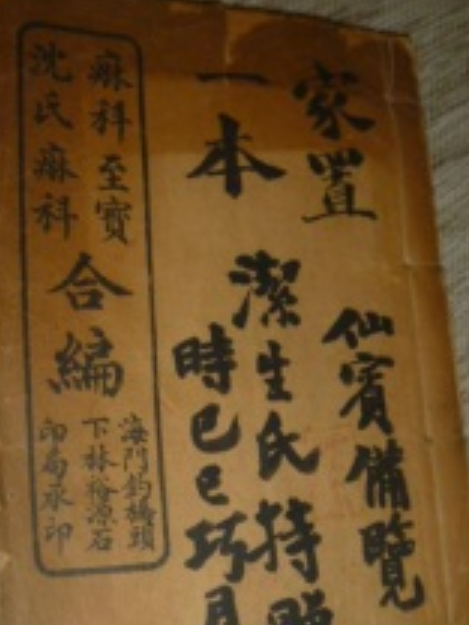 家置
一本
仙賓備覽
潔生氏持贈
時己巳巧月
痲科至寶
沈氏痲科
合編
海門釣橋頭
下林裕源石
印局承印